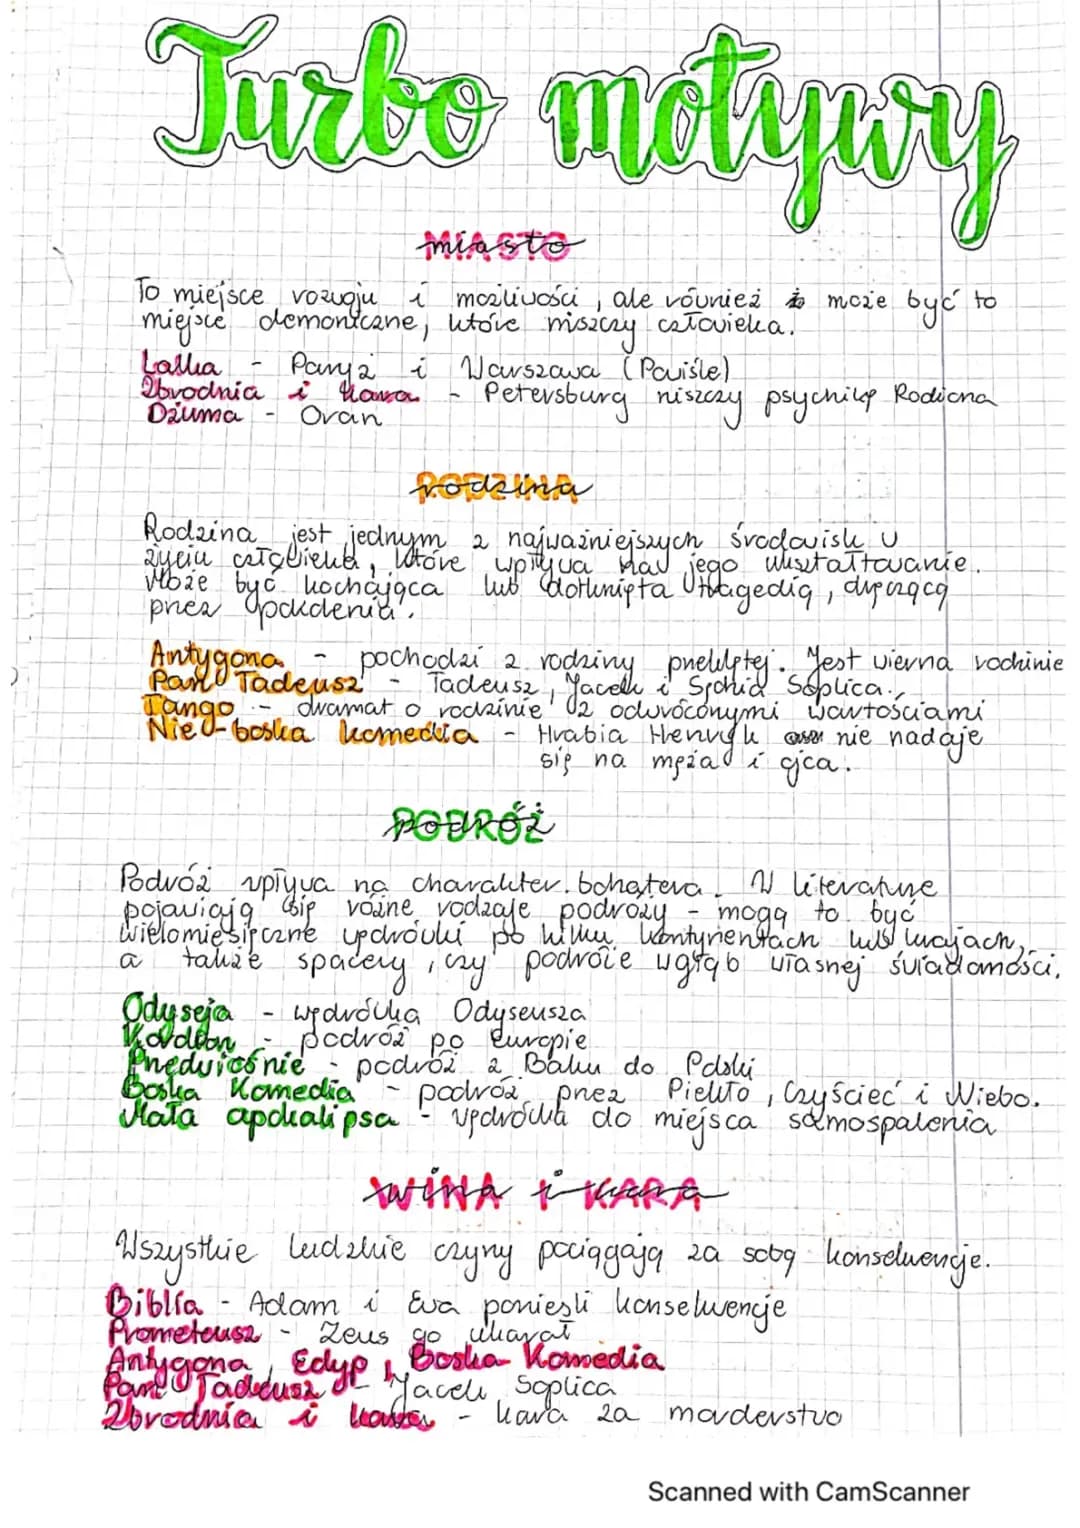 Turbo motywy
MIASTO
miasto
To miejsce rozwoju i możliwości, ale również może być to
miejsce demoniczne, które niszczy człowieka.
Lalka - Paryż i Warszawa (Powiśle)
Zbrodnia i kara - Petersburg niszczy psychikę Rodiona
Dżuma - Oran
RODZINA
rodzina
Rodzina jest jednym z najważniejszych środowisk w
życiu człowieka, które wpływa na jego kształtowanie.
Może być kochająca lub dotknięta tragedią, dręczącą
przez pokolenia.
Antygona - pochodzi z rodziny przeklętej. Jest wierna rodzinie
Pan Tadeusz - Tadeusz, Jacek i Sędzia Soplica.
Tango - dramat o rodzinie z odwróconymi wartościami
Nie-boska komedia - Hrabia Henryk nie nadaje
się na męża i ojca.
PODRÓŻ
podróż
Podróż wpływa na charakter bohatera. W literaturze
pojawiają się różne rodzaje podróży - mogą to być
wielomięsięczne wędrówki po kilku kontynentach lub krajach,
a także spacery, czy podróże wgłąb własnej świadomości.
Odyseja - wędrówka Odyseusza
Kordian - podróż po Europie
Przedwiośnie - podróż z Baku do Polski
Boska Komedia - podróż przez Piekło, Czyściec i Niebo.
Mała apokalipsa - wędrówka do miejsca samospalenia
WINA i KARA
wina i kara
Wszystkie ludzkie czyny pociągają za sobą konsekwencje.
Biblia - Adam i Ewa ponieśli konsekwencje
Prometeusz - Zeus go ukarał
Antygona, Edyp, Boska Komedia
Pan Tadeusz - Jacek Soplica
Zbrodnia i kara - kara za morderstwo
Scanned with CamScanner